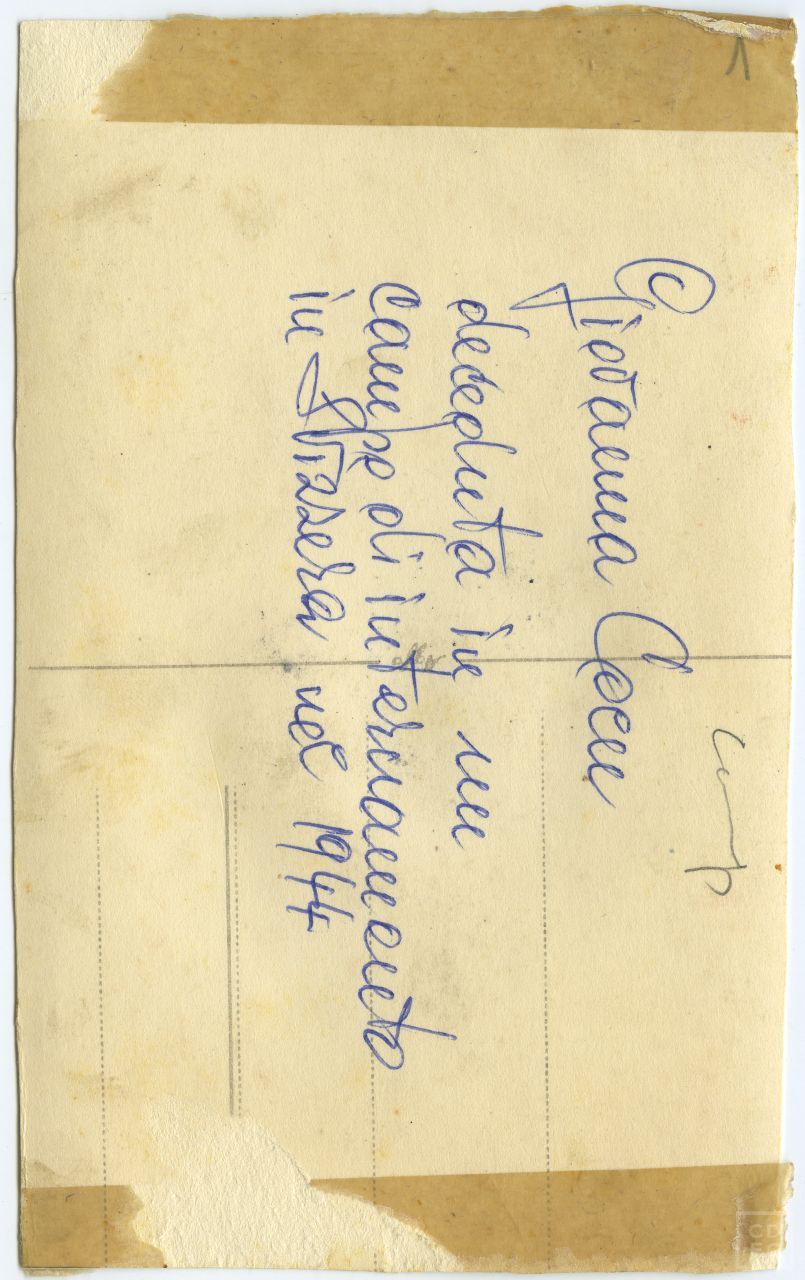 Giovanna Coen
deceduta in un
campo di internamento
in Svizzera nel 1944
1